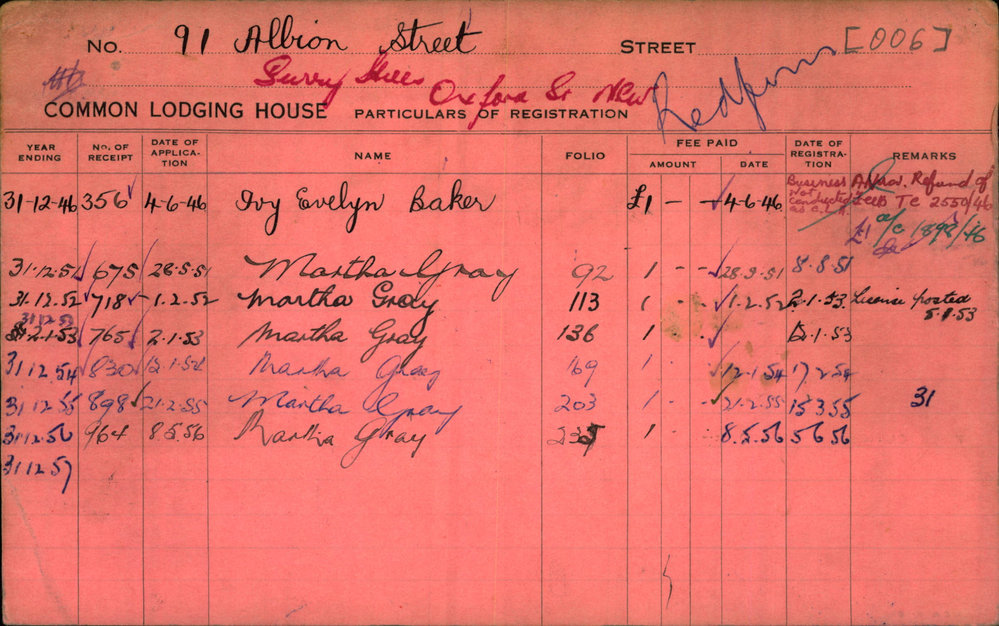 No. 91 Albion Street STREET [006]
Surry Hills
Oxford St New
Redfern
COMMON LODGING HOUSE PARTICULARS OF REGISTRATION
YEAR ENDING No. OF RECEIPT DATE OF APPLICATION NAME FOLIO FEE PAID AMOUNT DATE DATE OF REGISTRATION REMARKS
31-12-46 356 4-6-46 Ivy Evelyn Baker £1 - - 4-6-46 Business not conducted as C.L.H. Refund of fees Tc 2550/46
£1 a/c 1898/46
31.12.51 675 28.5.51 Martha Gray 92 1 - - 8.8.51
31.12.52 718 1.2.52 Martha Gray 113 1 - - 1.2.52 2.1.53 License posted 5.1.53
31.12.53
2.1.53 765 2.1.53 Martha Gray 136 1 2.1.53
31.12.54 830 12.1.54 Martha Gray 169 1 - 12.1.54 17.2.54
31.12.55 898 21.2.55 Martha Gray 203 1 - 21.2.55 15.3.55 31
31.12.56 964 8.5.56 Martha Gray 235 1 - 8.5.56 5 6 56
31.12.57